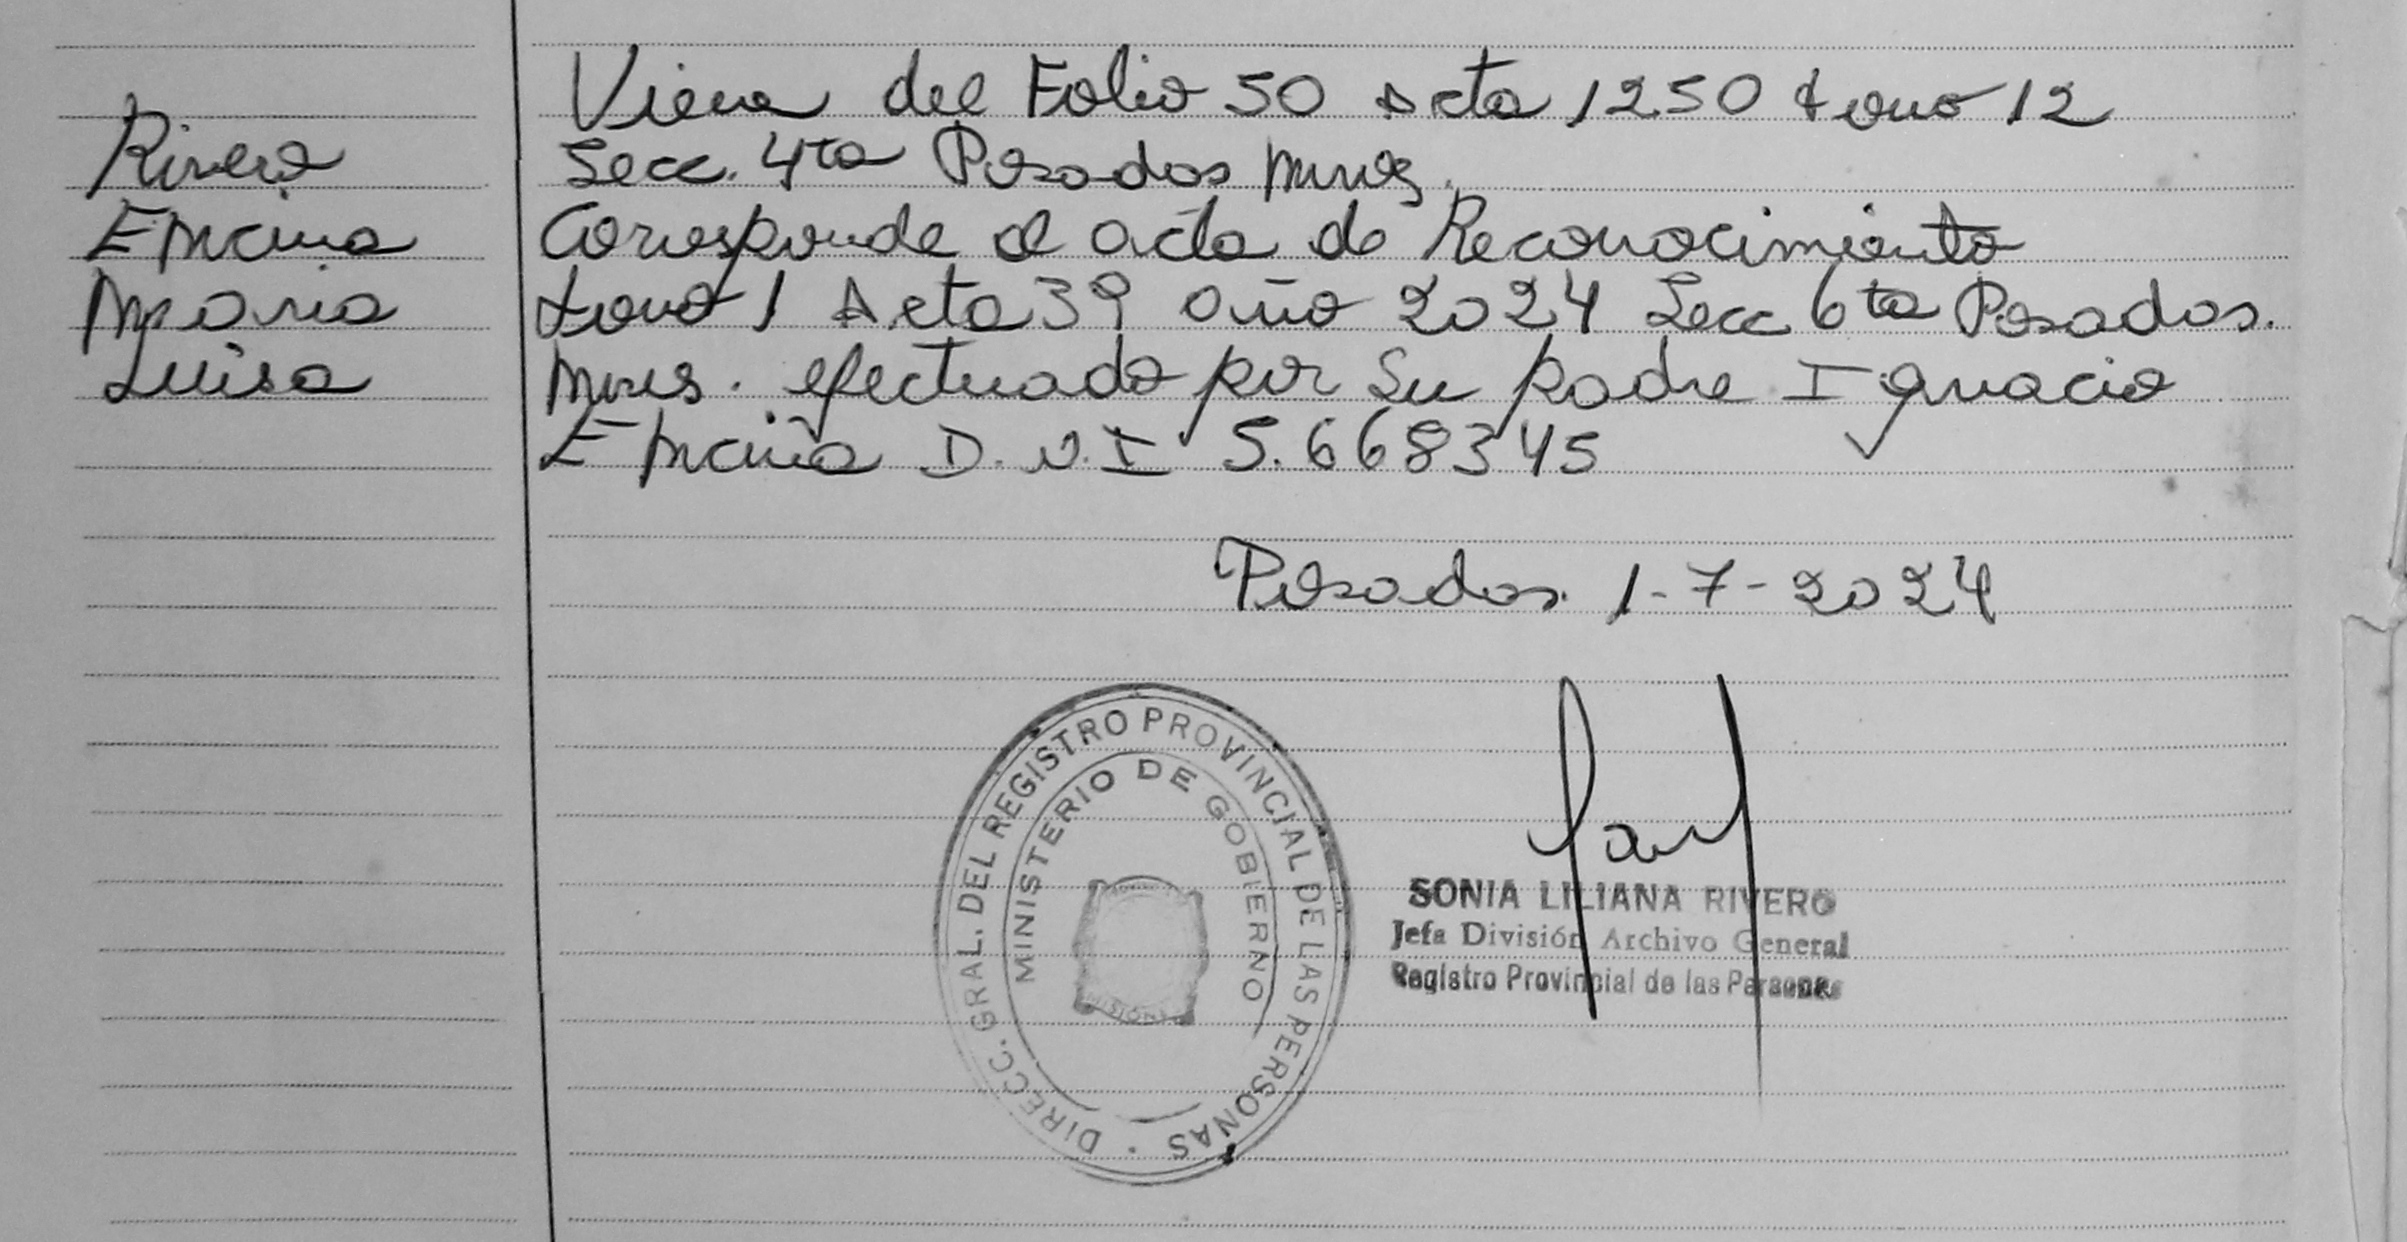 Rivero
Encina
Maria
Luisa
Viene del Folio 50 Acta 1250 tomo 12
Secc. 4ta Posadas Mnes.
Corresponde al acta de Reconocimiento
tomo 1 Acta 39 año 2024 Secc 6ta Posadas.
Mnes. efectuado por su padre Ignacio
Encina D.N.I 5.668345
Posadas. 1-7-2024
DIRECC. GRAL. DEL REGISTRO PROVINCIAL DE LAS PERSONAS
MINISTERIO DE GOBIERNO
MISIONES
SONIA LILIANA RIVERO
Jefa División Archivo General
Registro Provincial de las Personas